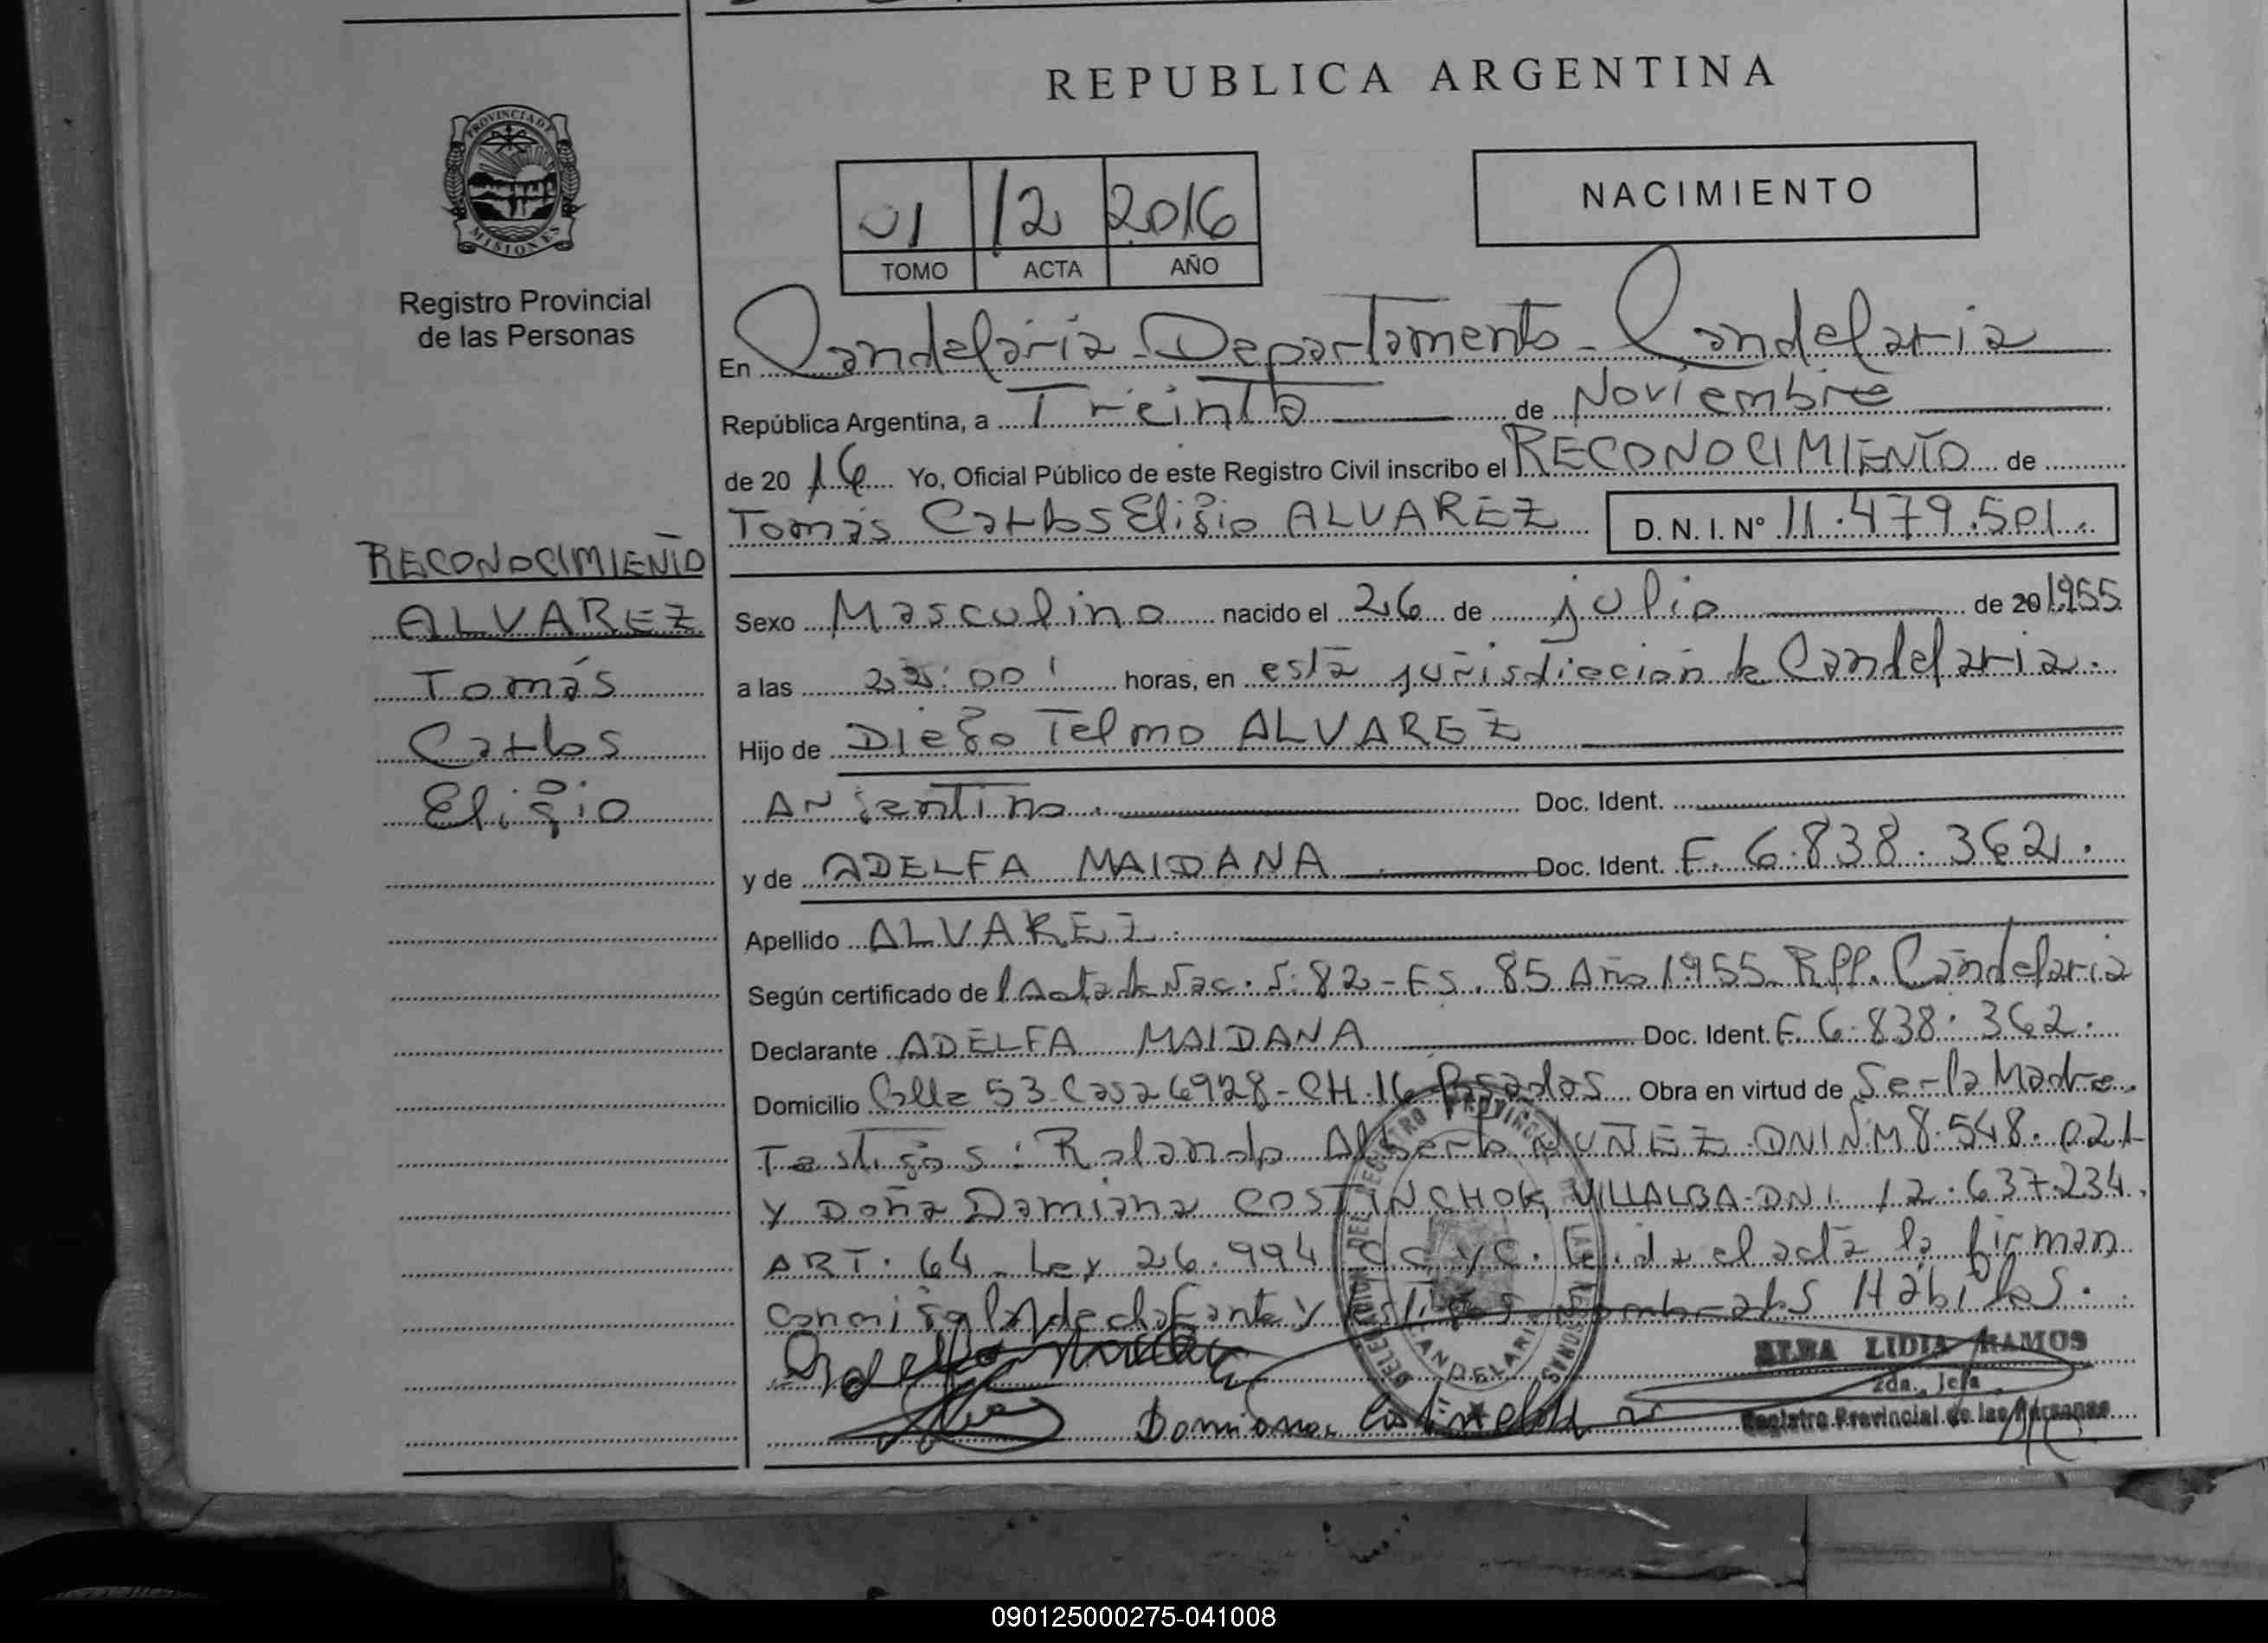 REPUBLICA ARGENTINA
PROVINCIA DE
MISIONES
Registro Provincial
de las Personas
01 12 2016
TOMO ACTA AÑO
NACIMIENTO
En Candelaria - Departamento - Candelaria
República Argentina, a Treinta de Noviembre
de 20 16 Yo, Oficial Público de este Registro Civil inscribo el RECONOCIMIENTO de
Tomás Carlos Eligio ALVAREZ D. N. I. Nº 11.479.501.
RECONOCIMIENTO
ALVAREZ
Tomás
Carlos
Eligio
Sexo Masculino nacido el 26 de julio de 20 1955
a las 22:00' horas, en esta jurisdicción de Candelaria.
Hijo de Diego Telmo ALVAREZ
Argentino. Doc. Ident.
y de ADELFA MAIDANA Doc. Ident. F. 6.838.362.
Apellido ALVAREZ.
Según certificado de l Acta de Nac. 82 - Fs. 85 Año 1955 - R.P.P. Candelaria
Declarante ADELFA MAIDANA Doc. Ident. F. 6.838.362.
Domicilio Calle 53 - Casa 6928 - CH. 16 Posadas Obra en virtud de Ser la Madre.
Testigos: Rolando Alberto NUÑEZ DNI N. M 8.548.021
y Doña Damiana COSTINCHOK VILLALBA - DNI. 12.637.234.
ART. 64 - Ley 26.994 CC y C. Leida el acta la firman
conmigo la declarante y testigos nombrados Habiles.
DELEGACION DEL REGISTRO PROVINCIAL DE LAS PERSONAS
CANDELARIA
ALBA LIDIA RAMOS
2da. Jefa
Registro Provincial de las Personas
090125000275-041008